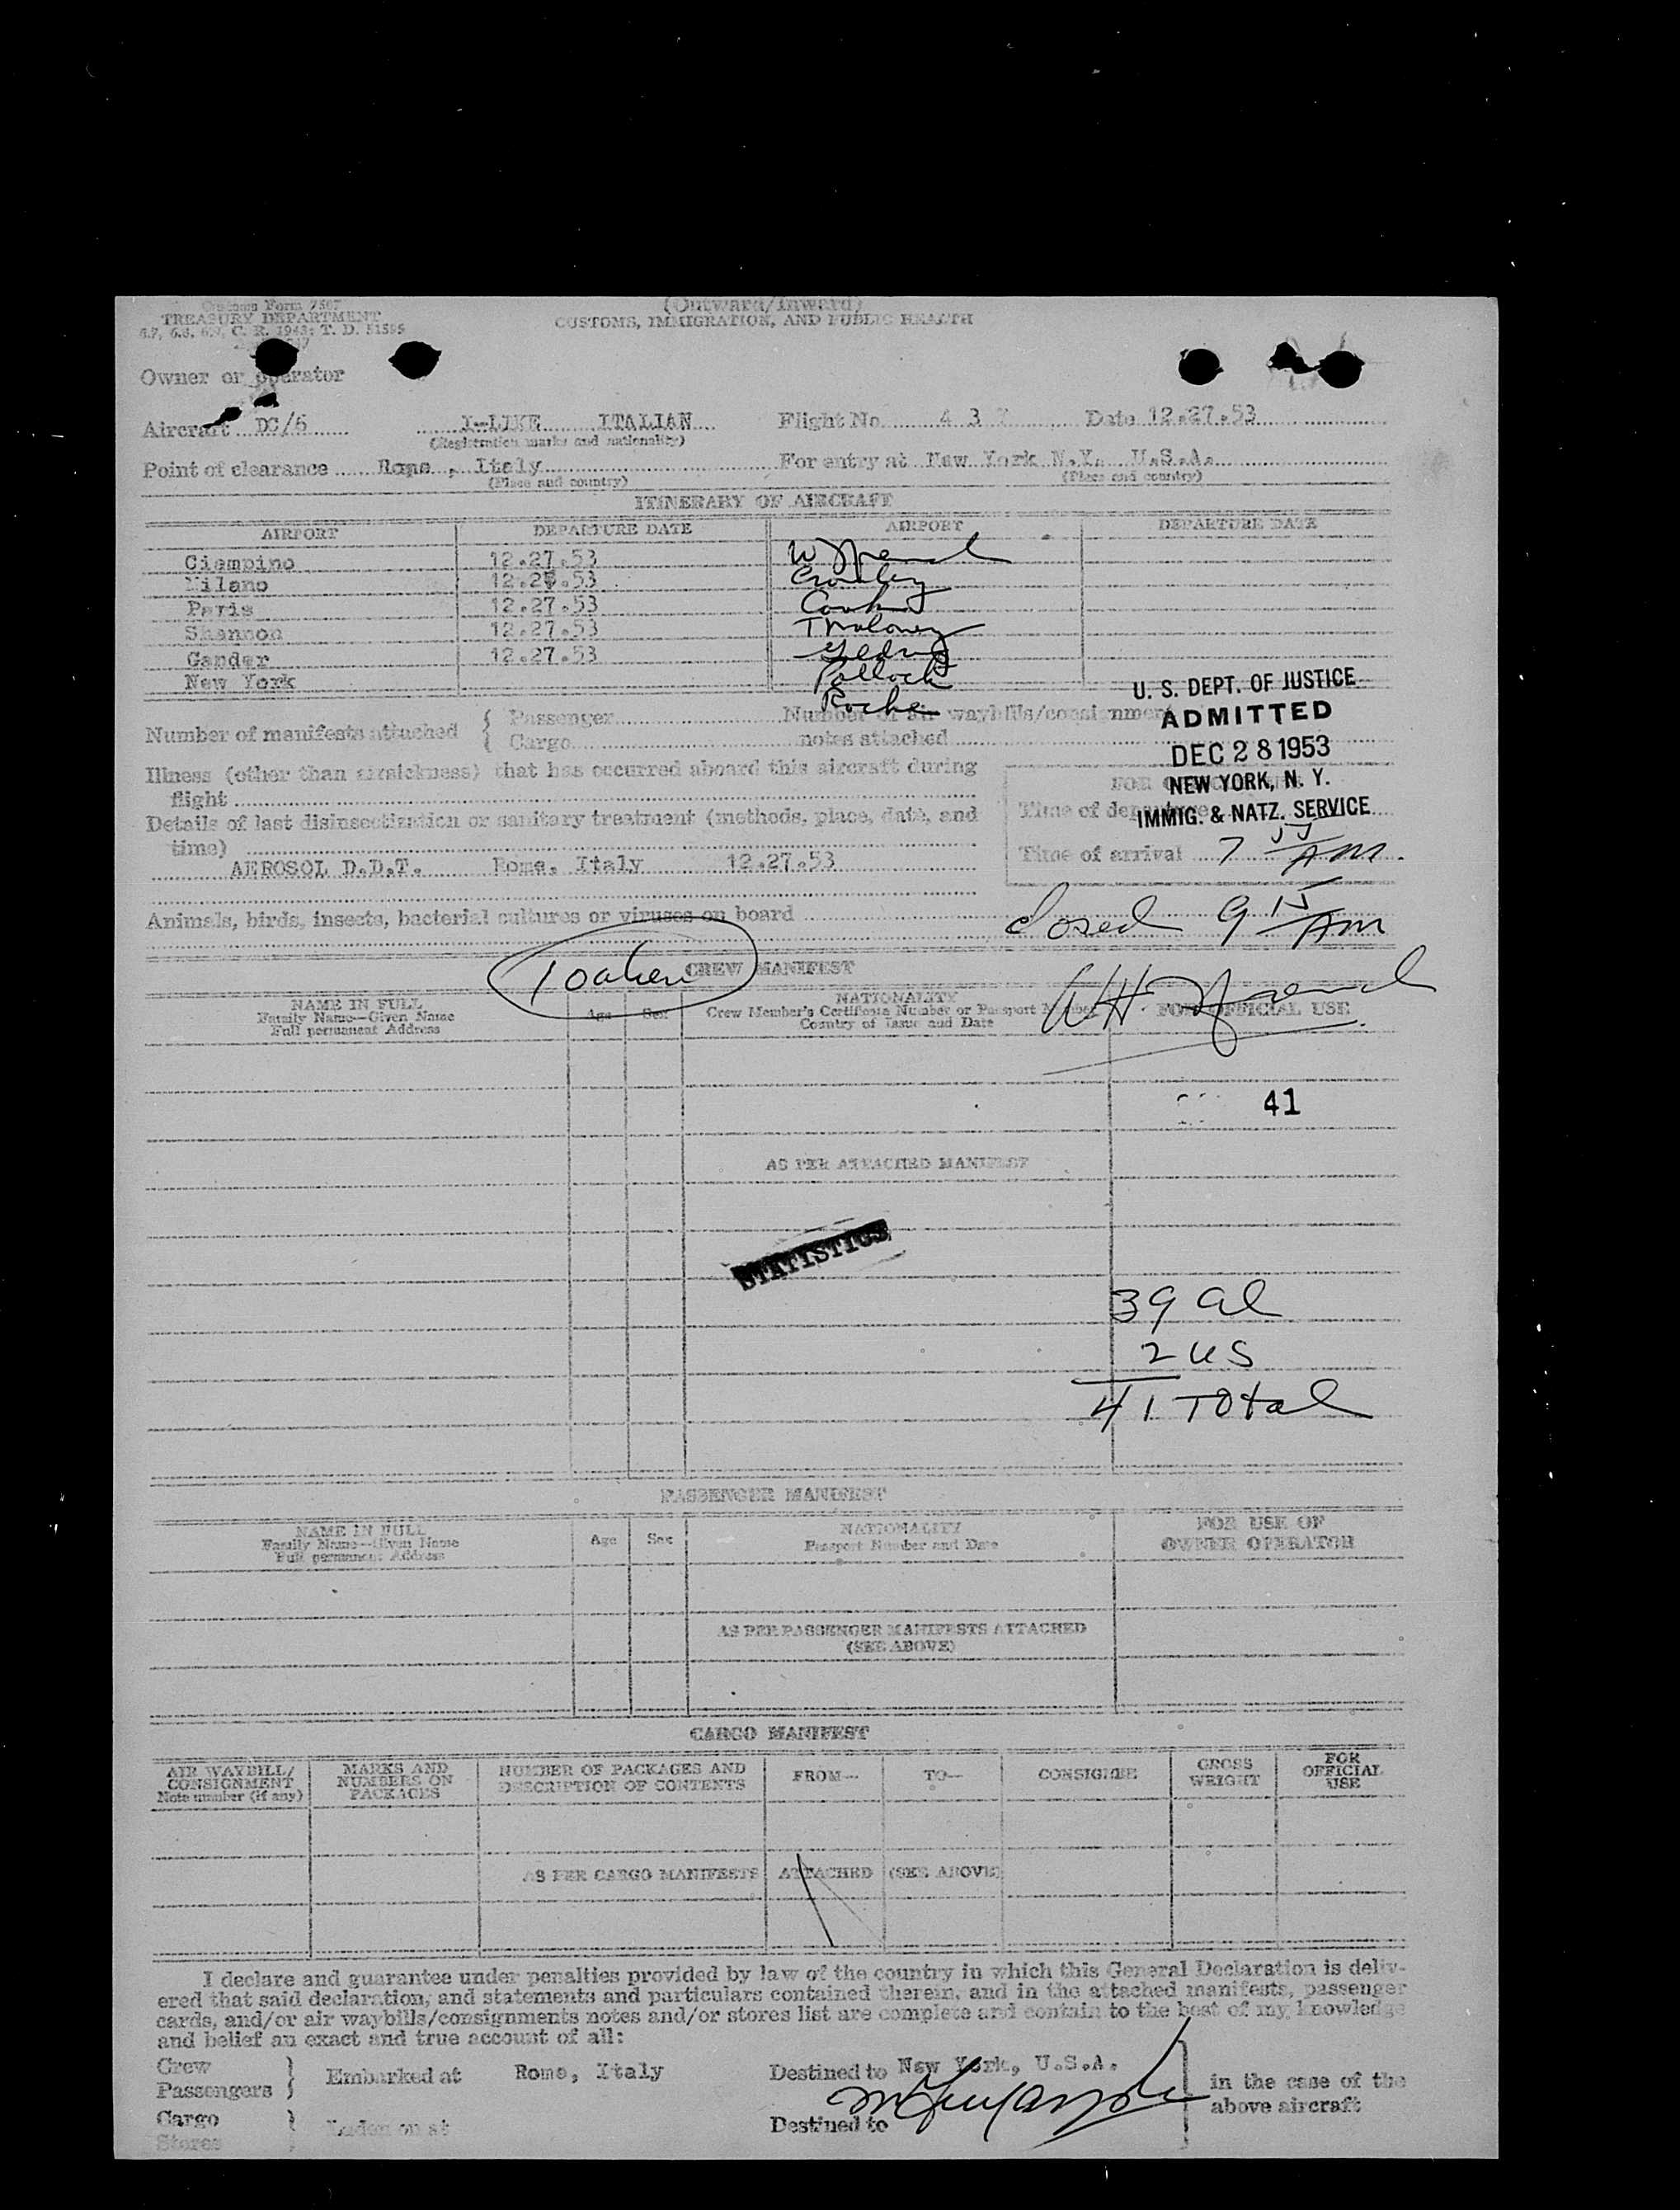 Customs Form 7507
TREASURY DEPARTMENT
C. R. 1943; T. D. 51595
(Outward/Inward)
CUSTOMS, IMMIGRATION, AND PUBLIC HEALTH
Owner or operator
Aircraft DC/6 I-LUKE ITALIAN Flight No. 4 3 Date 12.27.53
(Registration marks and nationality)
Point of clearance Rome , Italy For entry at New York N.Y. U.S.A.
(Place and country) (Place and country)
ITINERARY OF AIRCRAFT
AIRPORT DEPARTURE DATE AIRPORT DEPARTURE DATE
Ciampino 12.27.53
Milano 12.27.53 Crowley
Paris 12.27.53
Shannon 12.27.53 T Maloney
Gander 12.27.53
New York Pollock
Roche
U. S. DEPT. OF JUSTICE
ADMITTED
DEC 28 1953
NEW YORK, N. Y.
IMMIG. & NATZ. SERVICE
Number of manifests attached { Passenger Number of air waybills/consignment
Cargo notes attached
Illness (other than airsickness) that has occurred aboard this aircraft during
flight
Time of departure
Details of last disinsectization or sanitary treatment (methods, place, date, and
time)
AEROSOL D.D.T. Rome, Italy 12.27.53
Time of arrival 7 AM.
Animals, birds, insects, bacterial cultures or viruses on board
closed 9 15 AM
CREW MANIFEST
NAME IN FULL
Family Name—Given Name
Full permanent Address
Age Sex
NATIONALITY
Crew Member's Certificate Number or Passport Number
Country of Issue and Date
FOR OFFICIAL USE
41
AS PER ATTACHED MANIFEST
STATISTICS
39 al
2 US
41 Total
PASSENGER MANIFEST
NAME IN FULL
Family Name—Given Name
Full permanent Address
Age Sex
NATIONALITY
Passport Number and Date
FOR USE OF
OWNER OPERATOR
AS PER PASSENGER MANIFESTS ATTACHED
(SEE ABOVE)
CARGO MANIFEST
AIR WAYBILL/
CONSIGNMENT
Note number (if any)
MARKS AND
NUMBERS ON
PACKAGES
NUMBER OF PACKAGES AND
DESCRIPTION OF CONTENTS
FROM—
TO—
CONSIGNEE
GROSS
WEIGHT
FOR
OFFICIAL
USE
AS PER CARGO MANIFESTS ATTACHED (SEE ABOVE)
I declare and guarantee under penalties provided by law of the country in which this General Declaration is deliv-
ered that said declaration, and statements and particulars contained therein, and in the attached manifests, passenger
cards, and/or air waybills/consignments notes and/or stores list are complete and contain to the best of my knowledge
and belief an exact and true account of all:
Crew
Passengers } Embarked at Rome, Italy Destined to New York, U.S.A.
in the case of the
above aircraft
Cargo
Stores } Laden on at Destined to